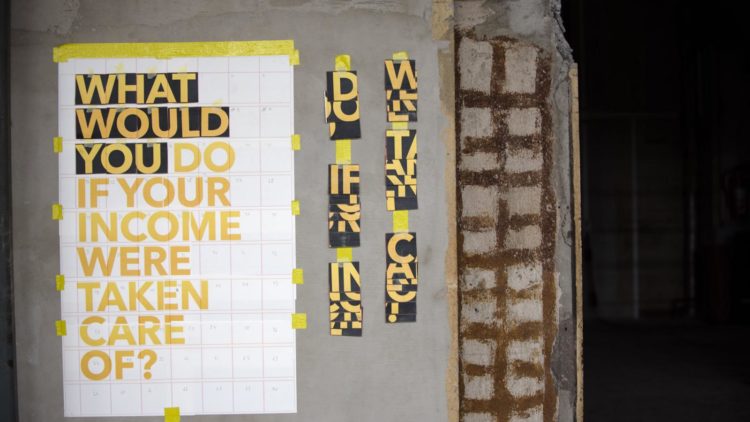 WHAT
WOULD
YOU DO
IF YOUR
INCOME
WERE
TAKEN
CARE
OF?
D
IF
IN
W
TA